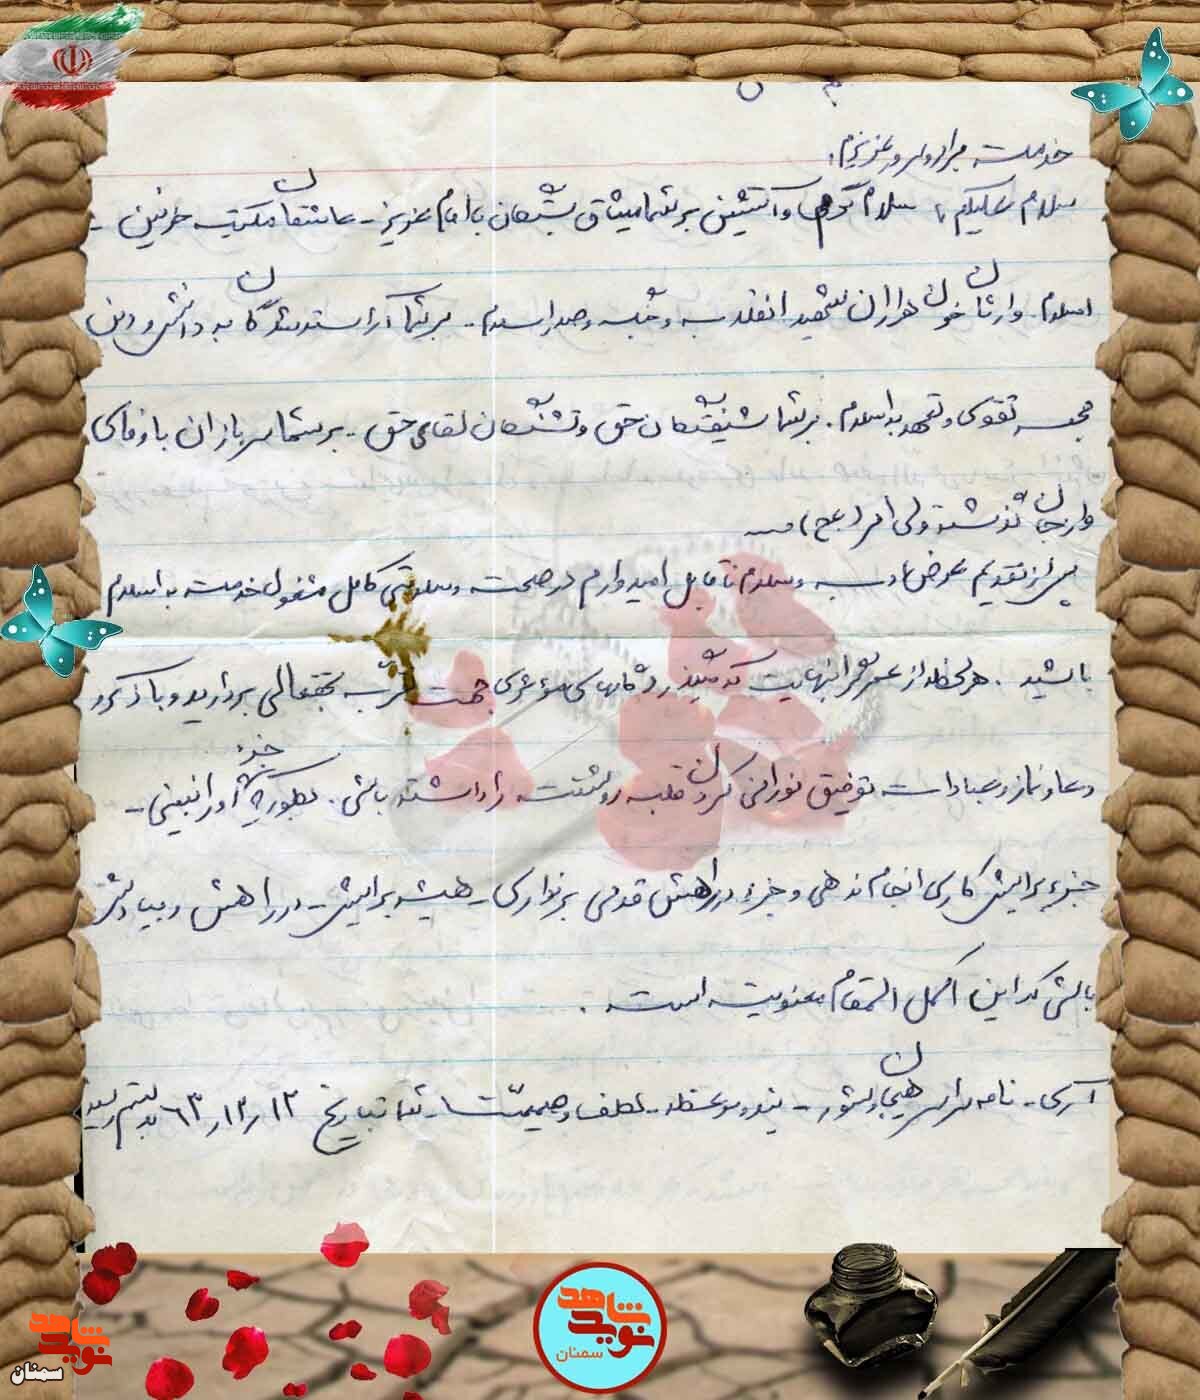 خدمت برادر و سرور عزیزم:
سلام علیکم، سلام گرم و آتشین بر شما میثاق بستگان با امام عزیز - عاشقان مکتب خونین -
اسلام. وارثان خون هزاران شهید انقلاب و جنگ و صدر اسلام. بر شما آراسته شدگان به دانش و دین
تقوی و تعهد به اسلام. بر شما شیفتگان حق و تشنگان لقای حق - بر شما سربازان باوفای
و از جان گذشته ولی امر (عج)
پس از تقدیم عرض ادب و سلام ناقابل امیدوارم در صحت و سلامتی کامل مشغول خدمت به اسلام
باشید. هر لحظه از عمر گرانبهایت که میگذرد گامهای مؤثری جهت تقرب بحقتعالی بردارید و با ذکر و
دعا و نماز و عبادات توفیق نورانی کردن قلب رو داشته باشی. بطوریکه جزء او را نبینی -
جزء برایش کاری انجام ندهی و جزء در راهش قدمی برنداری - همیشه برایش - در راهش و بیادش
باشی که این اکمل المقام معنویت است.
آری - نامه سراسر هیجان و شور - پند و موعظه - لطف و صمیمیت شما بتاریخ ۶۳/۱۲/۱۳ بدستم رسید
نوید شاهد
سمنان
نوید شاهد
سمنان